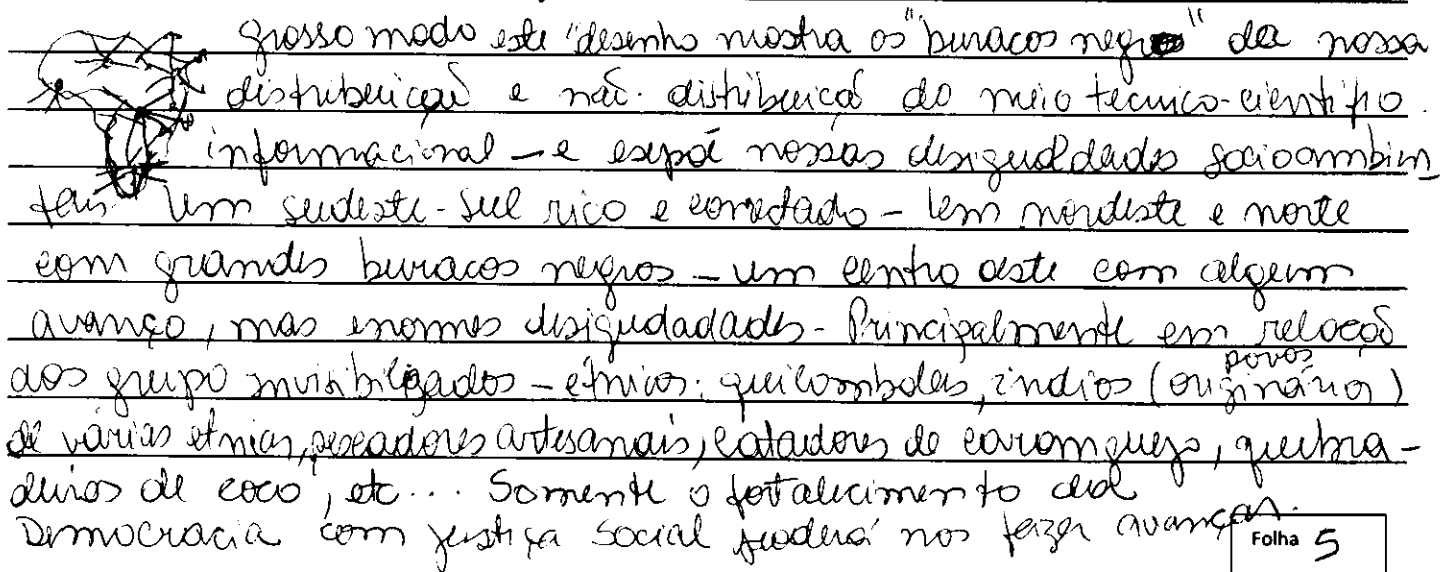 grosso modo este "desenho mostra os "buracos negros" da nossa
distribuição e não-distribuição do meio técnico-científico
informacional - e expõe nossas desigualdades socioambien
tais. Um sudeste-sul rico e conectado - um nordeste e norte
com grandes buracos negros - um centro oeste com algum
avanço, mas enormes desigudadades - Principalmente em relação
aos grupo invisibilizados - étnicos: quilombolas, índios (povos originários)
de várias etnias, pescadores artesanais, catadores de caranguejo, quebra-
deiras de coco, etc... Somente o fortalecimento da
Democracia com justiça social poderá nos fazer avançar.
Folha 5